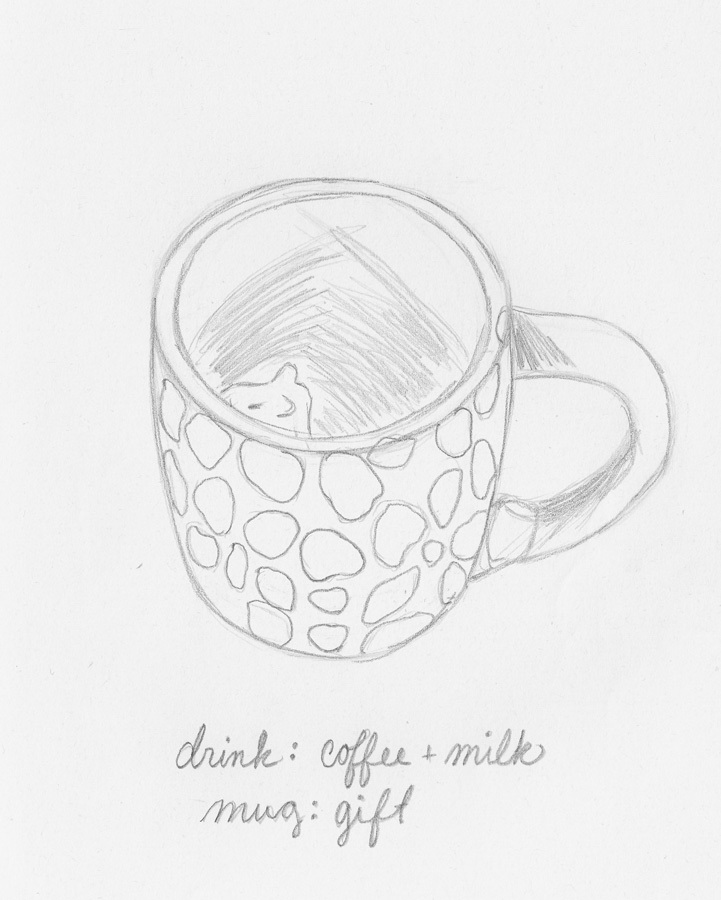 drink: coffee + milk
mug: gift